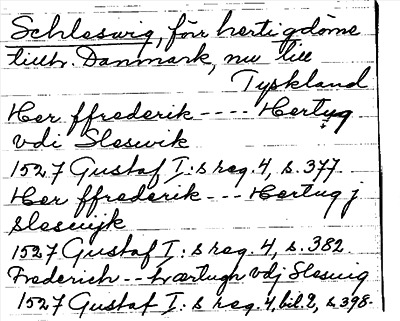 Schleswig, förr hertigdöme
tillh. Danmark, nu till
Tyskland
Her ffrederik ---- Hertug
vdi Sleswik
1527 Gustaf I:s reg. 4, s. 377.
Her ffrederik --- Hertug j
Sleswijk
1527 Gustaf I:s reg. 4, s. 382
Frederich -- hærtugh vdj Sleswig
1527 Gustaf I:s reg. 4, bil. 2, s. 398.